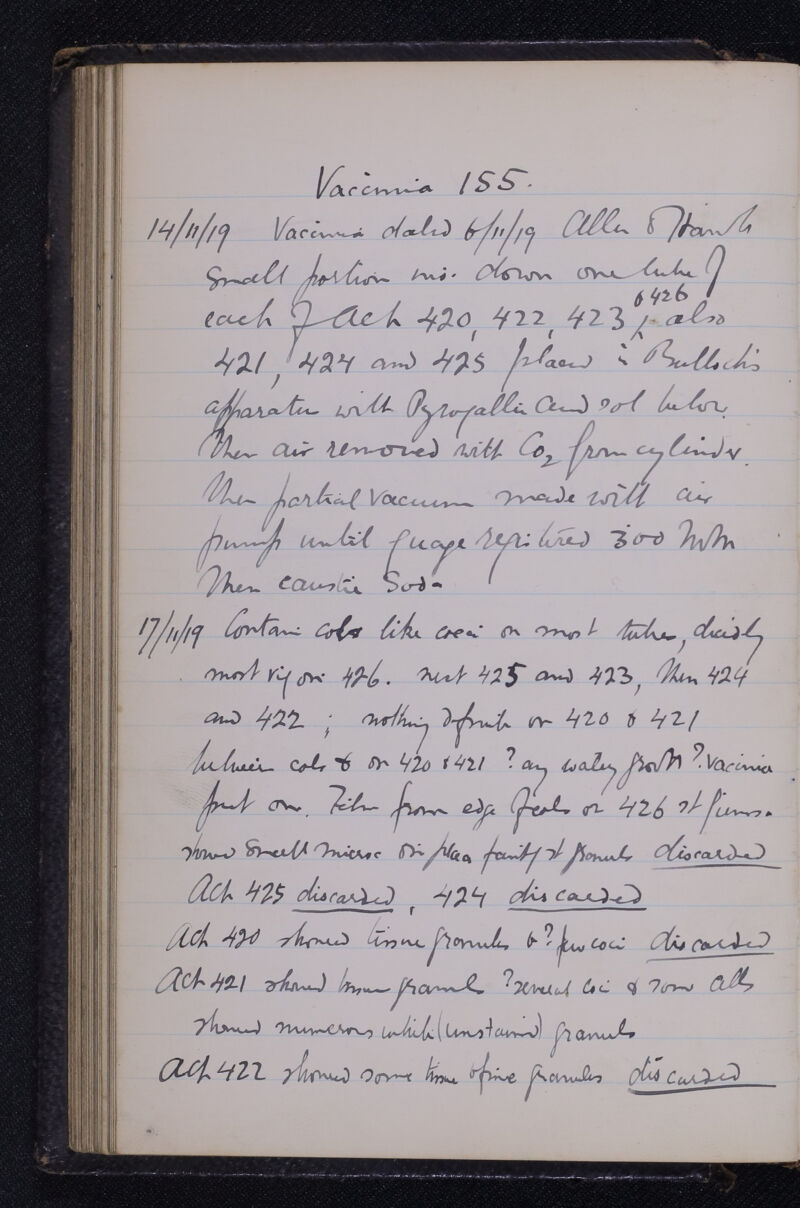 Vaccinia 155.
14/11/19 Vaccinia dated 6/11/19 Allen & Hanb
Small portion ins. down one tube of
each of Act 420, 422, 423, & 426 also
421, 424 and 425 placed in Bulloch's
apparatus with Pyrogallic acid sol below.
Then air removed with CO2 from cylinder.
Then partial vacuum made with air
pump until guage registered 300 MM
Then caustic Soda
17/11/19 Contain cols like cocci on most tubes, decidedly
most vigorous 426. next 425 and 423, then 424
and 422; nothing definite on 420 & 421
between cols & on 420 & 421 ? any watery growth ?. Vaccinia
put on. Film from edge of cols on 426 st
showed small micro st granules discarded
Act 425 discarded, 424 discarded
Act 420 showed tissue granules & ? few cocci discarded
Act 421 showed tissue granules ? several cocci & some cells
showed numerous white (unstained) granules
Act 422 showed some tissue & fine granules discarded